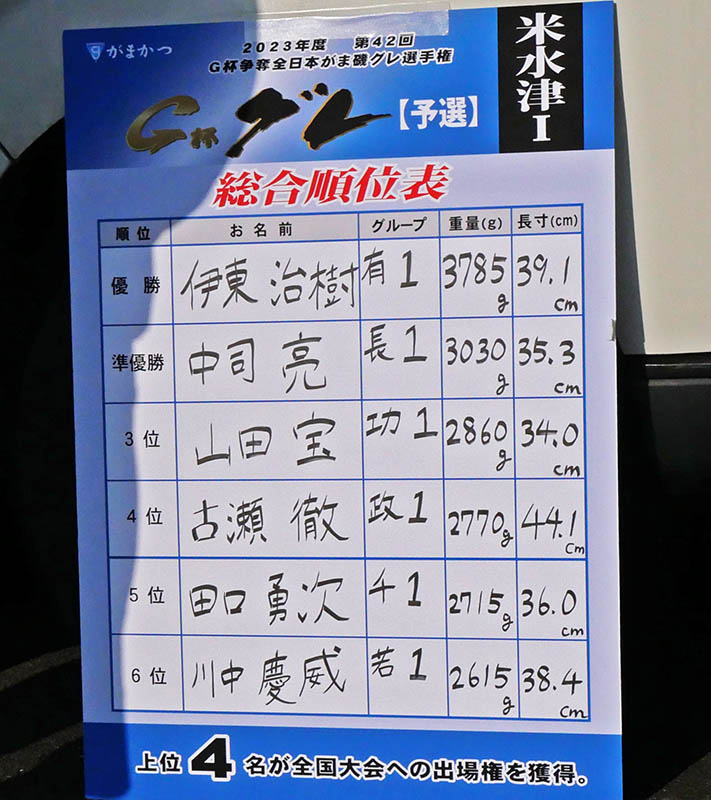 がまかつ
2023年度 第42回
G杯争奪全日本がま磯グレ選手権
米水津I
G杯 グレ【予選】
総合順位表
順位 お名前 グループ 重量(g) 長寸(cm)
優勝 伊東 治樹 有1 3785g 39.1cm
準優勝 中司 亮 長1 3030g 35.3cm
3位 山田 宝 功1 2860g 34.0cm
4位 古瀬 徹 政1 2770g 44.1cm
5位 田口 勇次 チ1 2715g 36.0cm
6位 川中 慶威 若1 2615g 38.4cm
上位4名が全国大会への出場権を獲得。